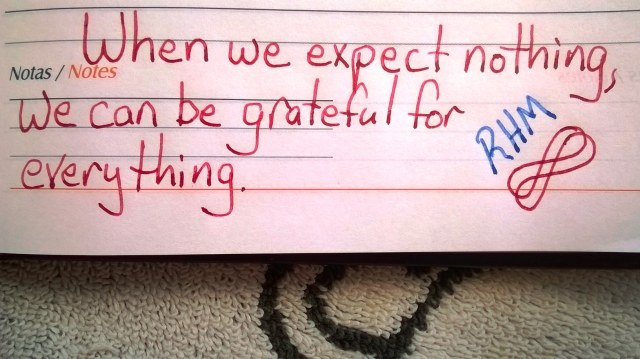 When we expect nothing,
Notas / Notes
We can be grateful for
everything.
RHM